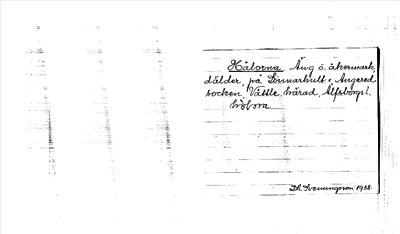 Hålorna Äng o. åkermark
dälder på Linnarhult, Angered
socken, Vättle härad, Älfsborgs l.
hålora
A. Svenningson 1938